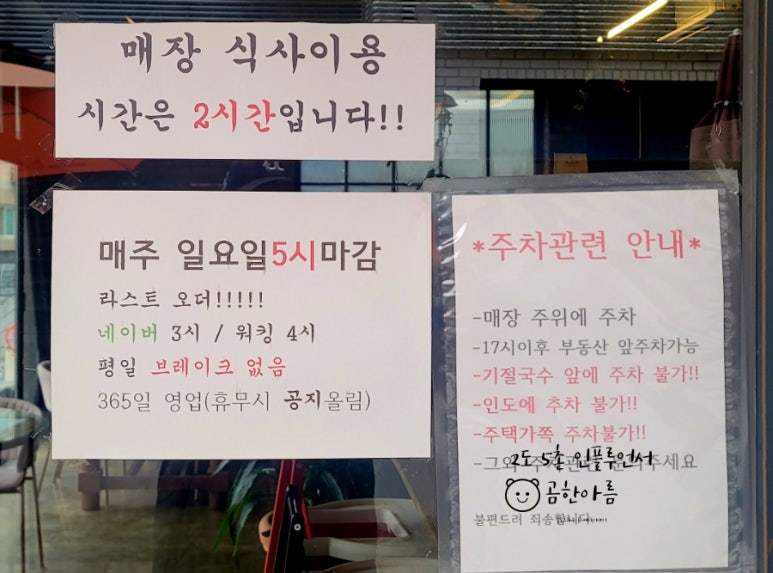 매장 식사이용
시간은 2시간입니다!!
매주 일요일5시마감
라스트 오더!!!!!
네이버 3시 / 워킹 4시
평일 브레이크 없음
365일 영업(휴무시 공지올림)
*주차관련 안내*
-매장 주위에 주차
-17시이후 부동산 앞주차가능
-기절국수 앞에 주차 불가!!
-인도에 추차 불가!!
-주택가쪽 주차불가!!
-그외 주세요
2도 5촌 인플루언서
곰한아름
불편드려 죄송합니다